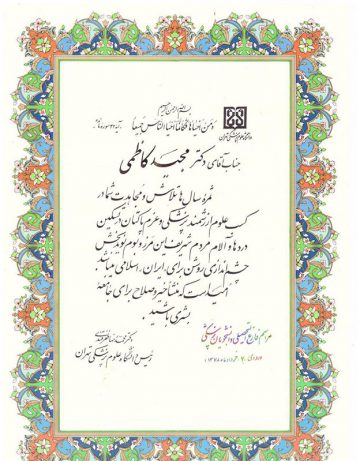 بسم الله الرحمن الرحیم
و من احیاها فکأنما احیا الناس جمیعاً
آیه ۳۲ سوره مائده
دانشگاه علوم پزشکی تهران
جناب آقای دکتر مجید کاظمی
ثمره سال‌ها تلاش و مجاهدت شما در
کسب علوم ارزشمند پزشکی و عزم پاکتان در تسکین
دردها و آلام مردم شریف این مرز و بوم نویدبخش
چشم‌اندازی روشن برای ایران اسلامی میباشد.
امید است که منشأ خیر و صلاح برای جامعه
بشری باشید.
مراسم فارغ التحصیلی دانشجویان پزشکی
ورودی ۷۰ خرداد ماه ۱۳۷۸
دکتر
رئیس دانشگاه علوم پزشکی تهران